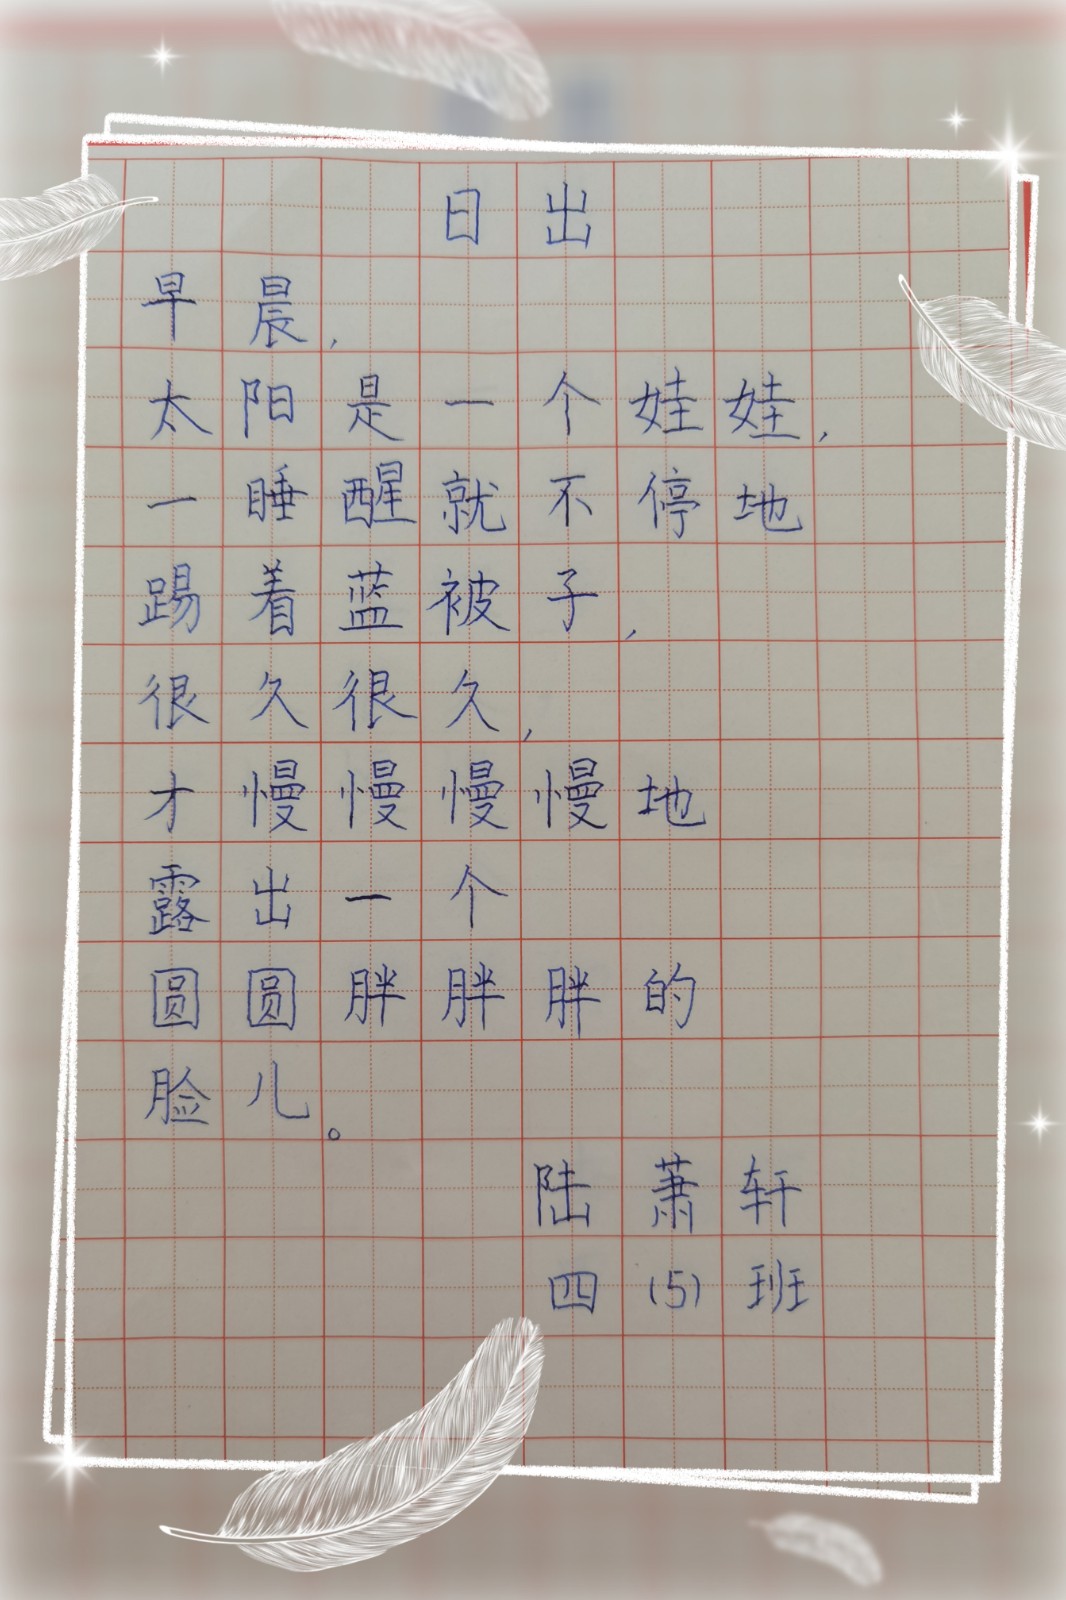 日出
早晨，
太阳是一个娃娃，
一睡醒就不停地
踢着蓝被子，
很久很久，
才慢慢慢慢地
露出一个
圆圆胖胖胖的
脸儿。
陆萧轩
四(5)班